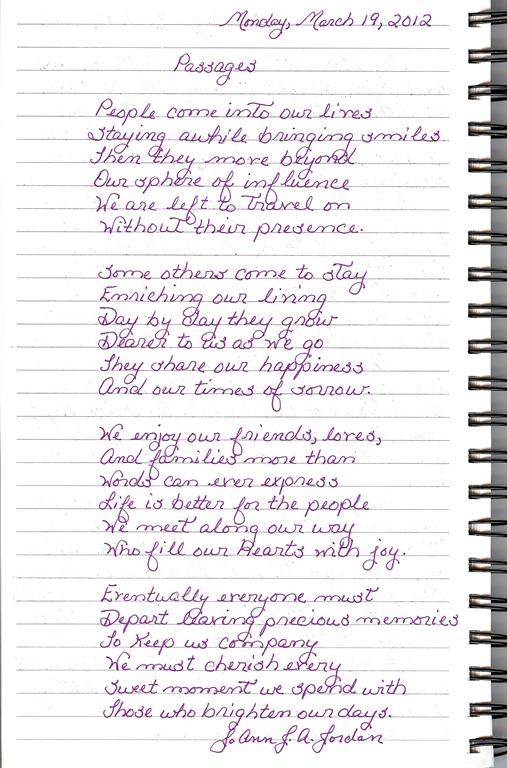 Monday, March 19, 2012
Passages
People come into our lives
Staying awhile bringing smiles
Then they move beyond
Our sphere of influence
We are left to Travel on
Without their presence.
Some others come to stay
Enriching our living
Day by Day they grow
Dearer to Us as we go
They share our happiness
And our times of sorrow.
We enjoy our friends, loves,
And families more than
Words can ever express
Life is better for the people
We meet along our way
Who fill our Hearts with joy.
Eventually everyone must
Depart leaving precious memories
To Keep us company
We must cherish every
Sweet moment we spend with
Those who brighten our days.
Jo Ann J. A. Jordan